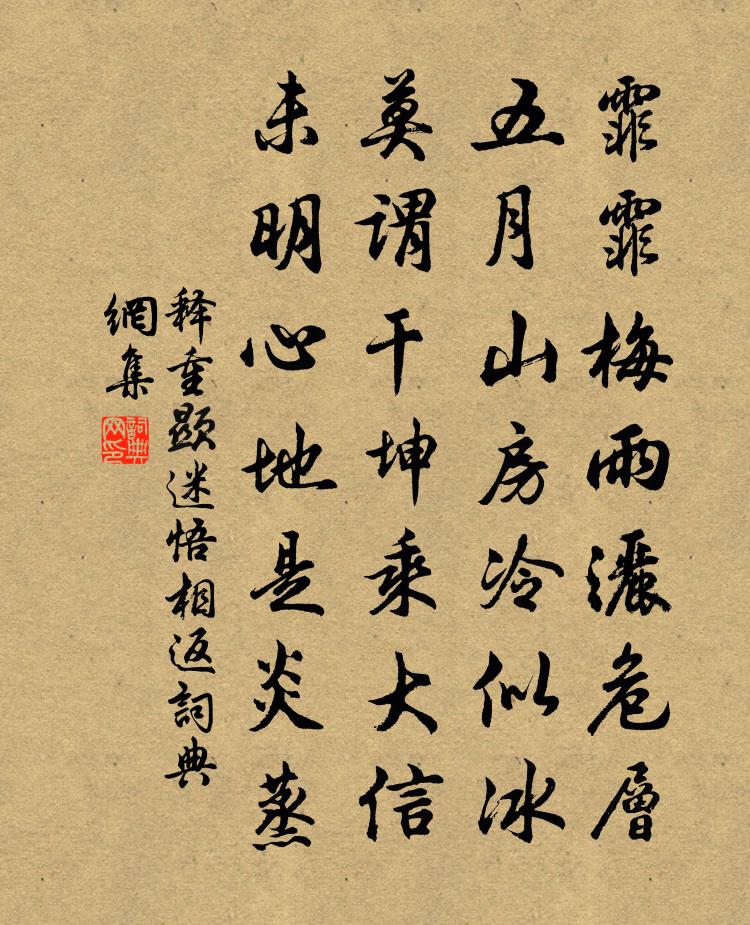 霏霏梅雨灑危層
五月山房冷似冰
莫謂干坤乘大信
未明心地是炎蒸
释重顯迷悟相返詞典
網集
詞典
网印